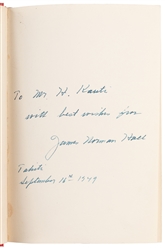 To Mr. H. Kauti
with best wishes from
James Norman Hall
Tahiti
September 16th 1949